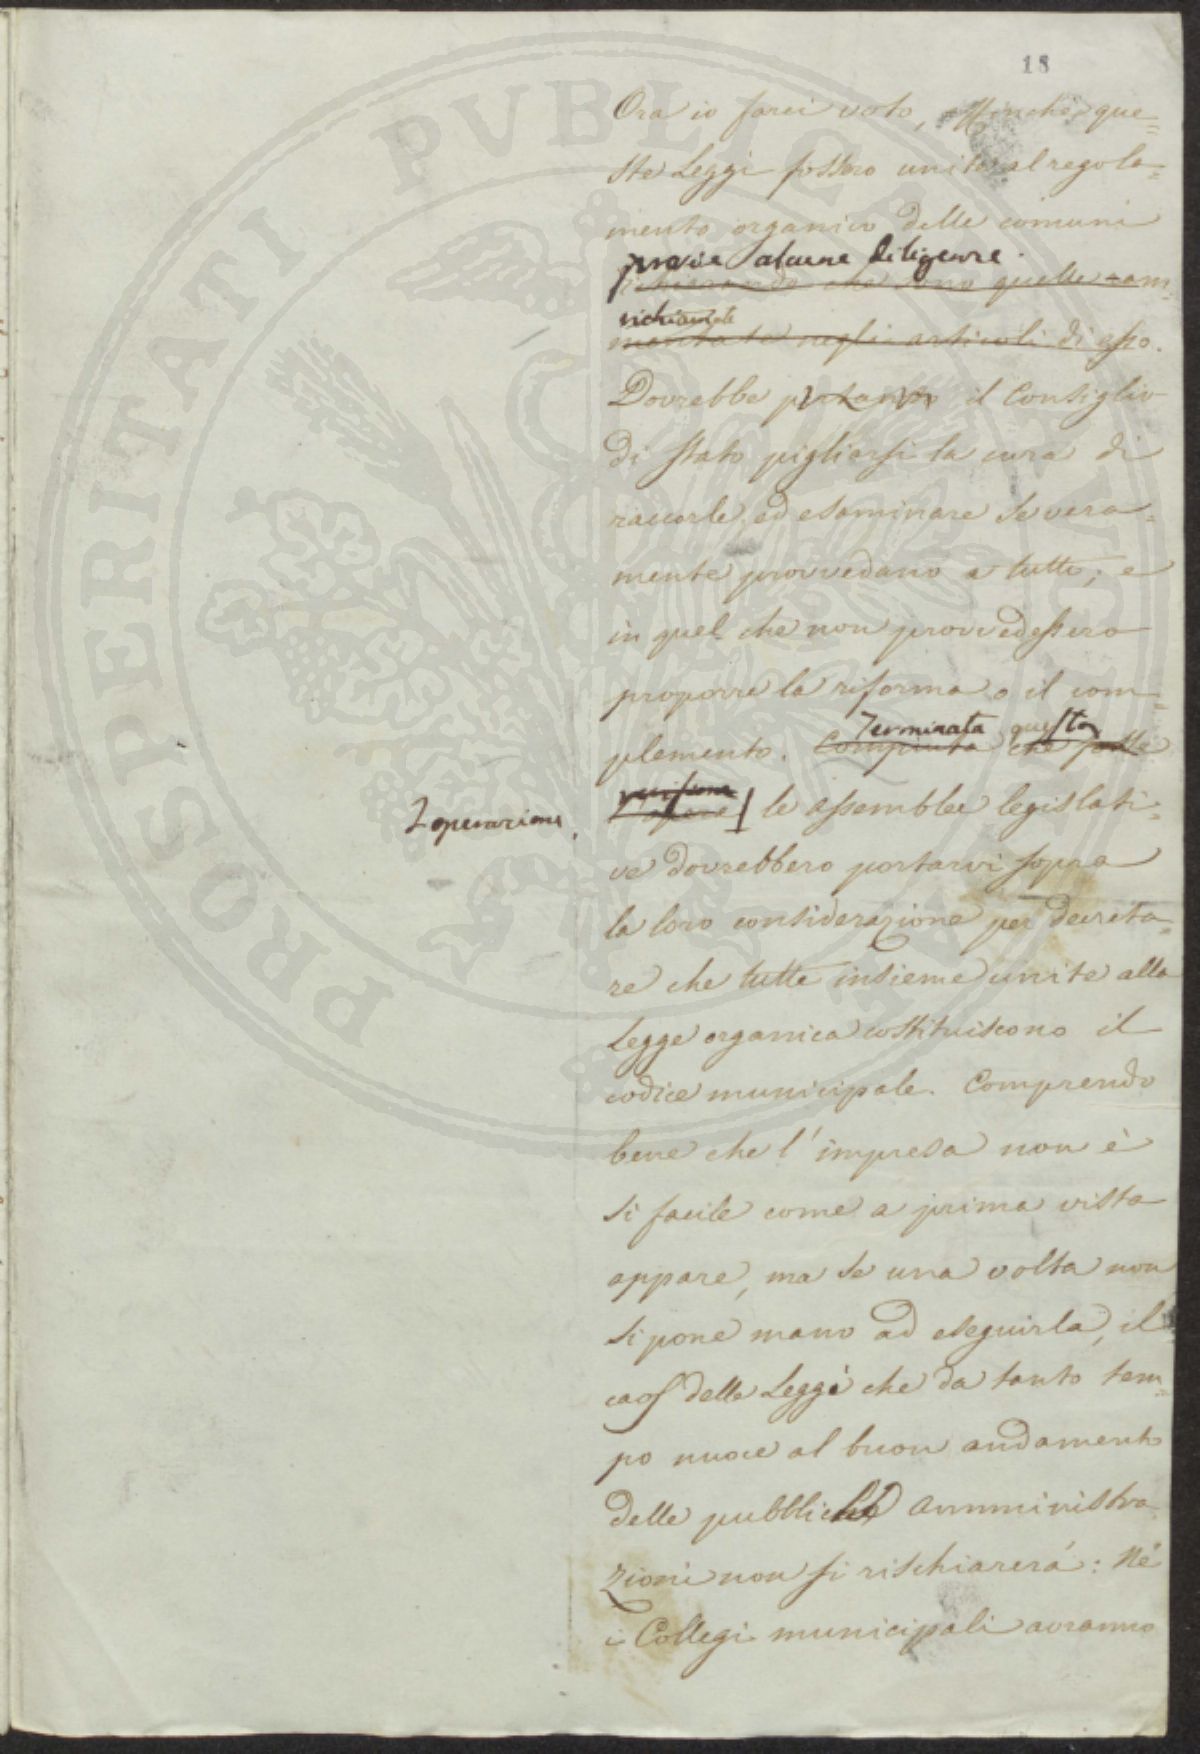 18
Ora io farei voto, affinché que=
ste Leggi fossero unite al regola=
mento organico delle comuni
previe alcune diligenze.
dichiarando che sono quelle ram=
richiamate
mentate negli articoli di esso.
Dovrebbe pertanto il Consiglio
di Stato pigliarsi la cura di
raccorle, ed esaminare se vera=
mente provvedano a tutto; e
in quel che non provvedessero
proporre la riforma o il com=
plemento. Compiuta che fosse
Terminata questa
revisione
l'opera
2 operazione,
le assemblee legislati=
ve dovrebbero portarvi sopra
la loro considerazione per decreta=
re che tutte insieme unite alla
Legge organica costituiscono il
codice municipale. Comprendo
bene che l'impresa non è
sì facile come a prima vista
appare, ma se una volta non
si pone mano ad eseguirla, il
caos delle Leggi che da tanto tem=
po nuoce al buon andamento
delle pubbliche amministra
zioni non si rischiarerà: Né
i Collegi municipali avranno
PROSPERITATI PVBLICAE